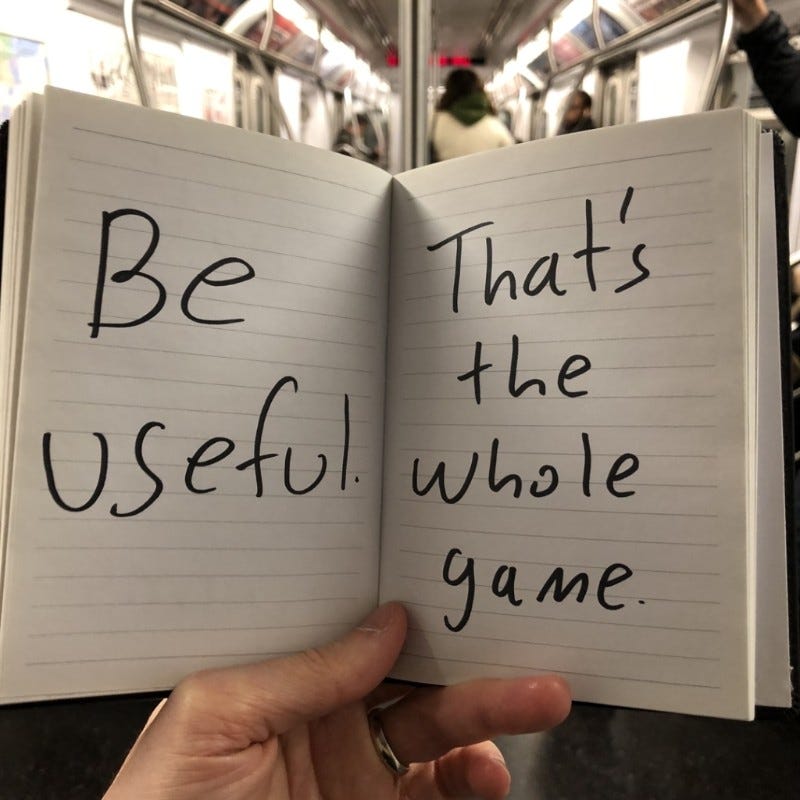 Be
useful.
That's
the
whole
game.